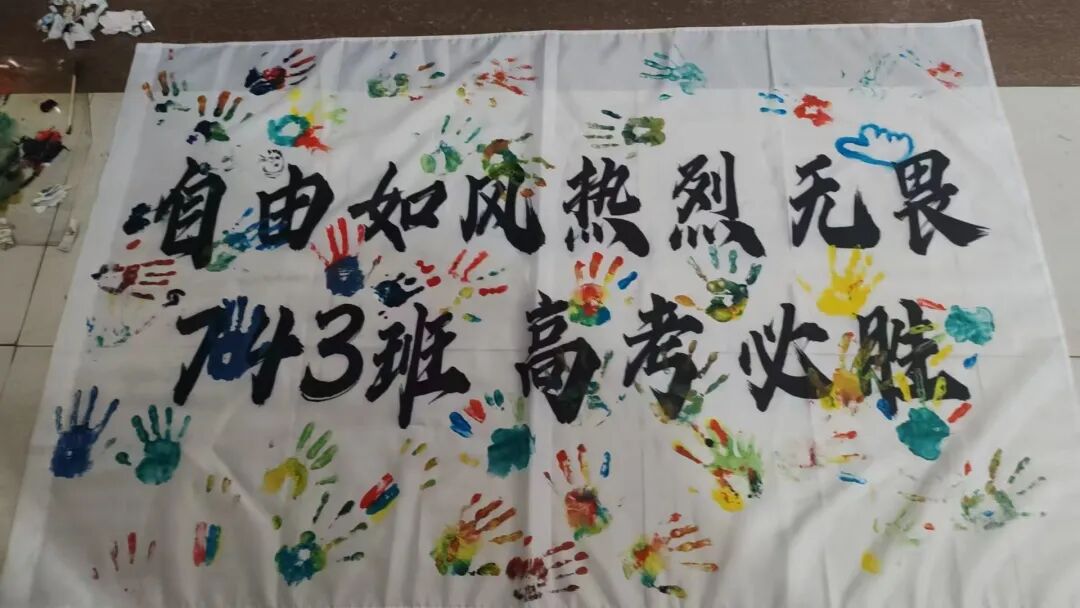 自由如风热烈无畏
743班 高考必胜